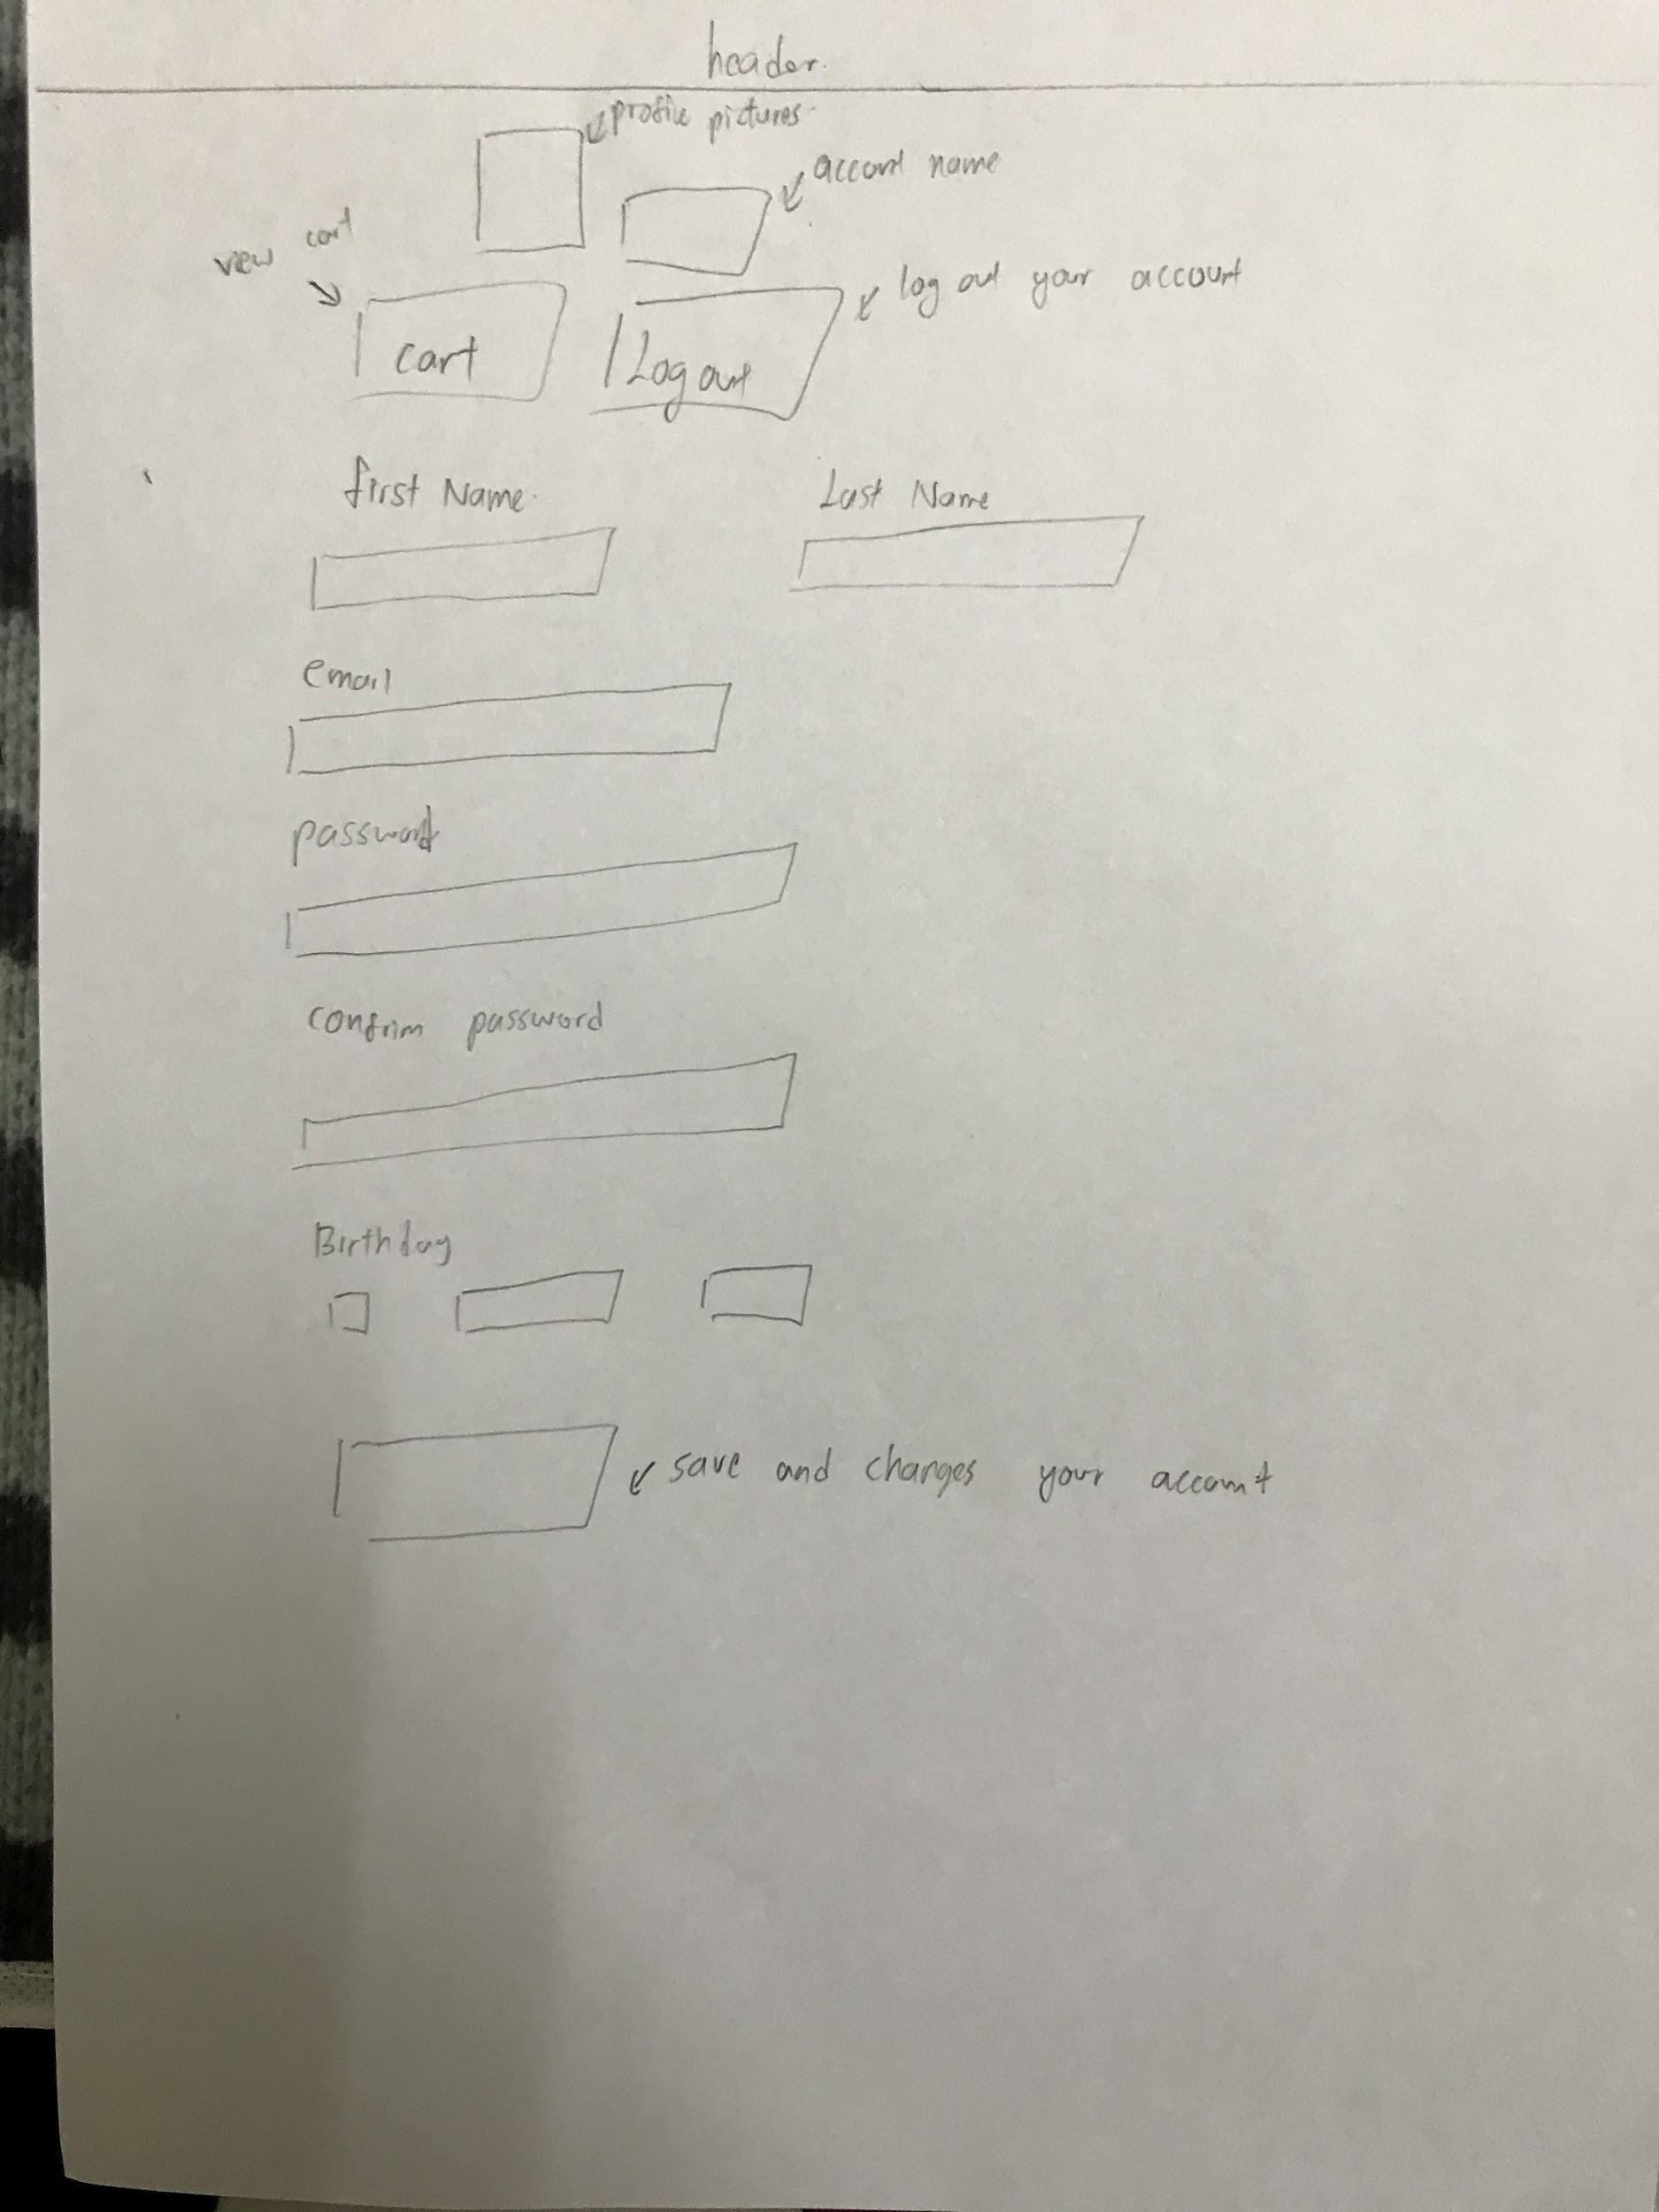 header.
profile pictures
account name
view cart
log out your account
cart
Log out
first Name.
Last Name
email
password
confrim password
Birthday
save and changes your account